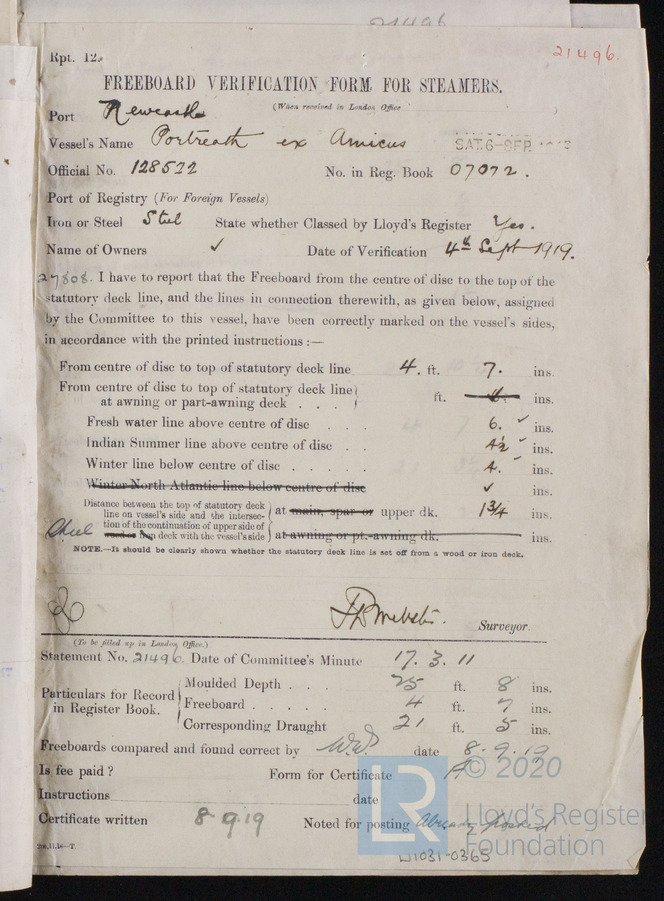 21496
Rpt. 12.
21496.
FREEBOARD VERIFICATION FORM FOR STEAMERS.
(When received in London Office )
Port Newcastle
Vessel's Name Portreath ex Amicus
SAT. 6-SEP
Official No. 128522 No. in Reg. Book 07072.
Port of Registry (For Foreign Vessels)
Iron or Steel Steel State whether Classed by Lloyd's Register Yes.
Name of Owners ✓ Date of Verification 4th Sept 1919.
27808. I have to report that the Freeboard from the centre of disc to the top of the
statutory deck line, and the lines in connection therewith, as given below, assigned
by the Committee to this vessel, have been correctly marked on the vessel's sides,
in accordance with the printed instructions :—
From centre of disc to top of statutory deck line 4. ft. 7. ins.
From centre of disc to top of statutory deck line
at awning or part-awning deck . . . ft. ins.
Fresh water line above centre of disc . . . 6. ✓ ins.
Indian Summer line above centre of disc . . 4½ ✓ ins.
Winter line below centre of disc . . . . . 4. ✓ ins.
Winter North Atlantic line below centre of disc ✓ ins.
Distance between the top of statutory deck
line on vessel's side and the intersec- at main, spar or upper dk. 1¾ ins.
Steel tion of the continuation of upper side of
wood or iron deck with the vessel's side at awning or pt.-awning dk. ins.
NOTE.—It should be clearly shown whether the statutory deck line is set off from a wood or iron deck.
Webster. Surveyor.
(To be filled up in London Office.)
Statement No. 21496. Date of Committee's Minute 17. 3. 11
Particulars for Record in Register Book.
Moulded Depth . . . 25 ft. 8 ins.
Freeboard . . . . . 4 ft. 7 ins.
Corresponding Draught 21 ft. 5 ins.
Freeboards compared and found correct by date 8. 9. 19
Is fee paid ? Form for Certificate A
Instructions date
Certificate written 8 9 19 Noted for posting Already posted
2m,11,16—T.
W1031-0365
LR
© 2020
Lloyd's Register
Foundation